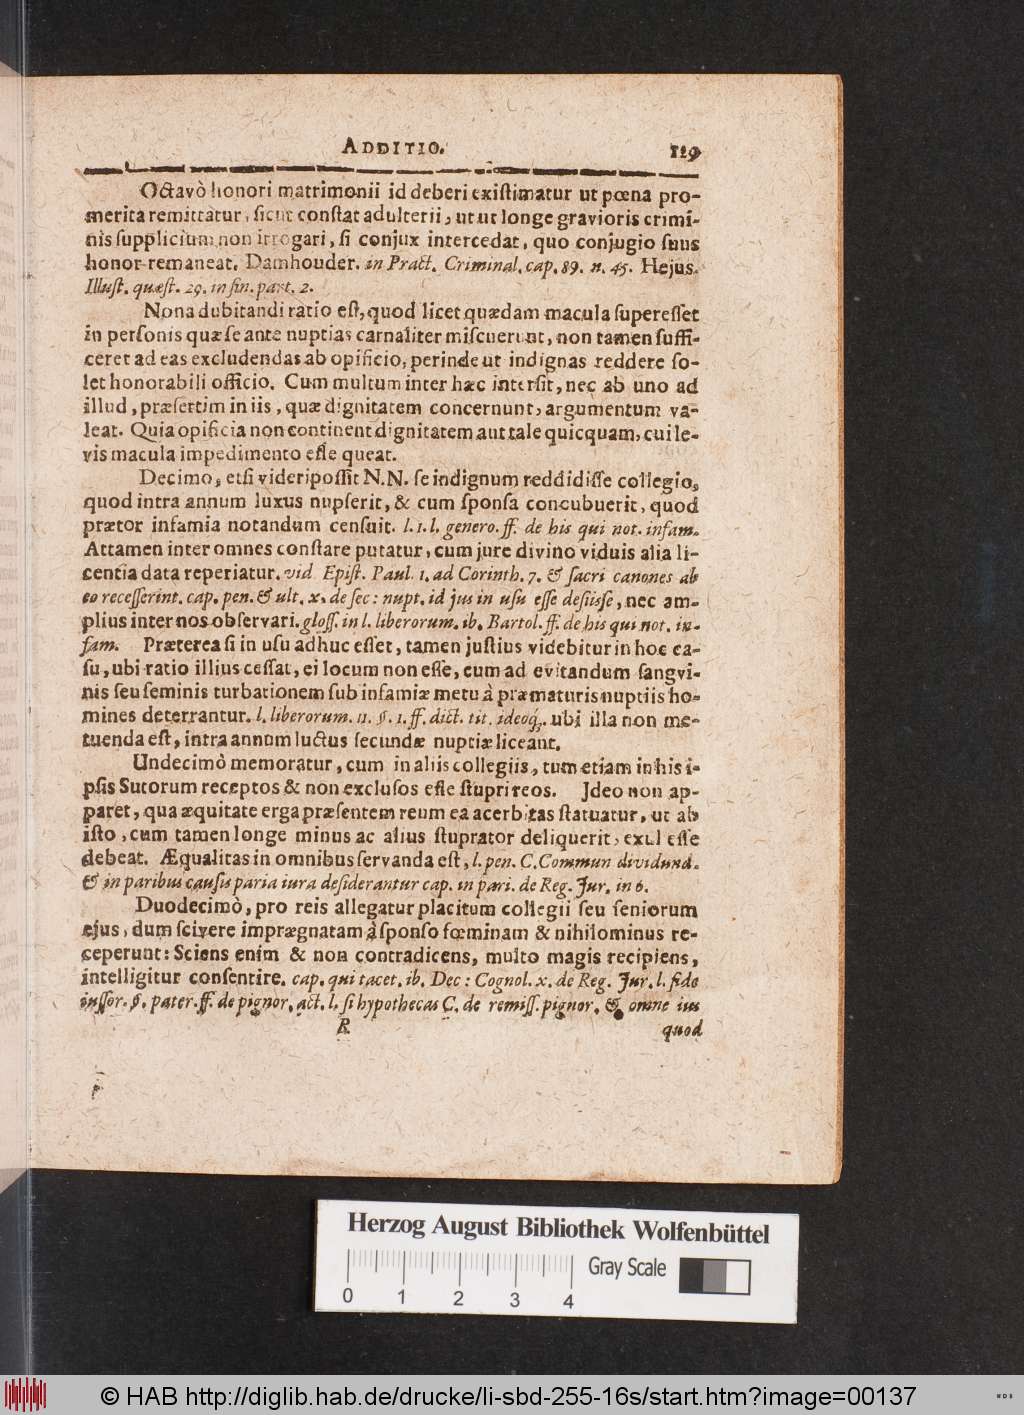 ADDITIO. 129
Octavò honori matrimonii id deberi existimatur ut pœna pro-
merita remittatur, sicut constat adulterii, ut ut longe gravioris crimi-
nis supplicium non irrogari, si conjux intercedat, quo conjugio suus
honor remaneat. Damhouder. in Pract. Criminal. cap. 89. n. 45. Hejus.
Illust. quæst. 29. in fin. part. 2.
Nona dubitandi ratio est, quod licet quædam macula superesset
in personis quæ se ante nuptias carnaliter miscuerunt, non tamen suffi-
ceret ad eas excludendas ab opificio, perinde ut indignas reddere so-
let honorabili officio. Cum multum inter hæc intersit, nec ab uno ad
illud, præsertim in iis, quæ dignitatem concernunt, argumentum va-
leat. Quia opificia non continent dignitatem aut tale quicquam, cui le-
vis macula impedimento esse queat.
Decimo, etsi videri possit N.N. se indignum reddidisse collegio,
quod intra annum luxus nupserit, & cum sponsa concubuerit, quod
prætor infamia notandum censuit. l. 1. l. genero. ff. de his qui not. infam.
Attamen inter omnes constare putatur, cum jure divino viduis alia li-
centia data reperiatur. vid Epist. Paul. 1. ad Corinth. 7. & sacri canones ab
eo recesserint. cap. pen. & ult. x. de sec: nupt. id jus in usu esse desiisse, nec am-
plius inter nos observari. gloss. in l. liberorum. ib. Bartol. ff. de his qui not. in-
fam. Præterea si in usu adhuc esset, tamen justius videbitur in hoc ca-
su, ubi ratio illius cessat, ei locum non esse, cum ad evitandum sangvi-
nis seu seminis turbationem sub infamiæ metu à præmaturis nuptiis ho-
mines deterrantur. l. liberorum. 11. §. 1. ff. dict. tit. ideoq;. ubi illa non me-
tuenda est, intra annum luctus secundæ nuptiæ liceant.
Undecimò memoratur, cum in aliis collegiis, tum etiam in his i-
psis Sutorum receptos & non exclusos esse stupri reos. Jdeo non ap-
paret, qua æquitate erga præsentem reum ea acerbitas statuatur, ut ab
isto, cum tamen longe minus ac alius stuprator deliquerit, exul esse
debeat. Æqualitas in omnibus servanda est, l. pen. C. Commun dividund.
& in paribus causis paria iura desiderantur cap. in pari. de Reg. Jur. in 6.
Duodecimò, pro reis allegatur placitum collegii seu seniorum
ejus, dum scivere imprægnatam à sponso fœminam & nihilominus re-
ceperunt: Sciens enim & non contradicens, multo magis recipiens,
intelligitur consentire. cap. qui tacet. ib. Dec: Cognol. x. de Reg. Jur. l. fide
iussor. §. pater. ff. de pignor. act. l. si hypothecas C. de remiss. pignor. & omne ius
R quod
Herzog August Bibliothek Wolfenbüttel
Gray Scale
0 1 2 3 4
© HAB http://diglib.hab.de/drucke/li-sbd-255-16s/start.htm?image=00137
WDB